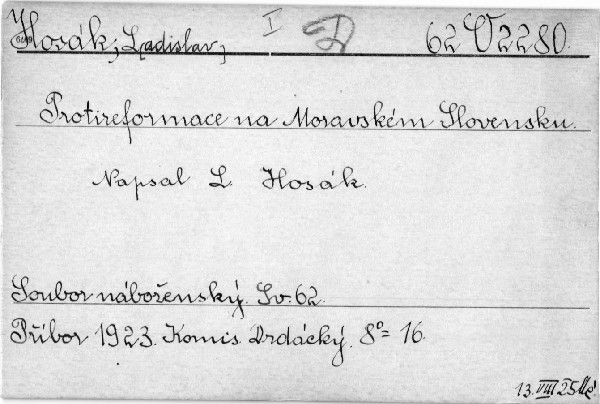 Hosák, L[adislav, I D 62 O 2280.
Protireformace na Moravském Slovensku.
Napsal L. Hosák.
Soubor náboženský. Sv. 62.
Příbor 1923. Komis. Drdácký. 8° = 16.
13. VIII 25